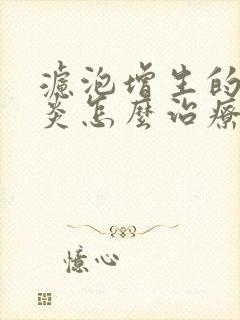 濾泡增生的
炎怎麼治療
憶心